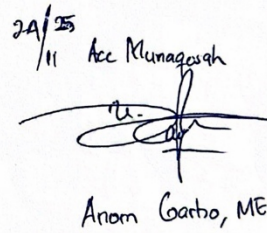 24/25
11
Acc Munaqosah
Anom Garbo, ME